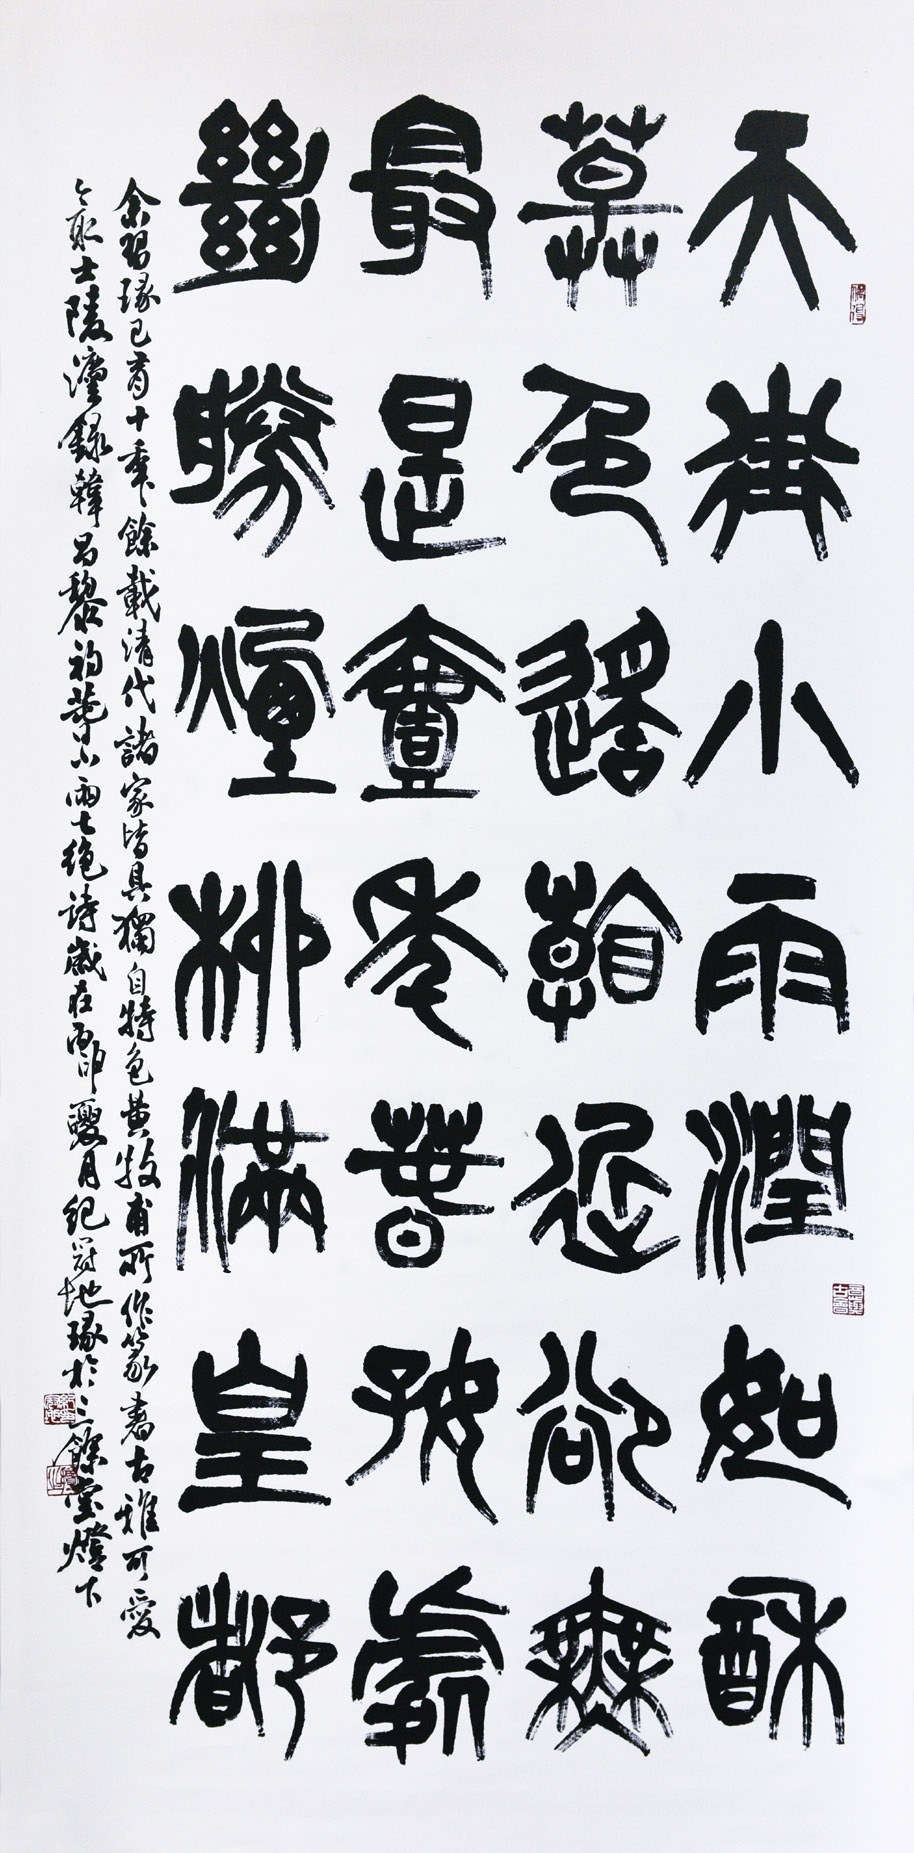 天街小雨潤如酥
草色遙看近卻無
最是壹年春好處
絕勝煙柳滿皇都
余習瑑已有十年餘載清代諸家皆具獨自特色黃牧甫所作篆書古雅可愛
今取士陵灋錄韓昌黎初春小雨七絕詩歲在丙申夏月紀冠地瑑於三餘堂燈下